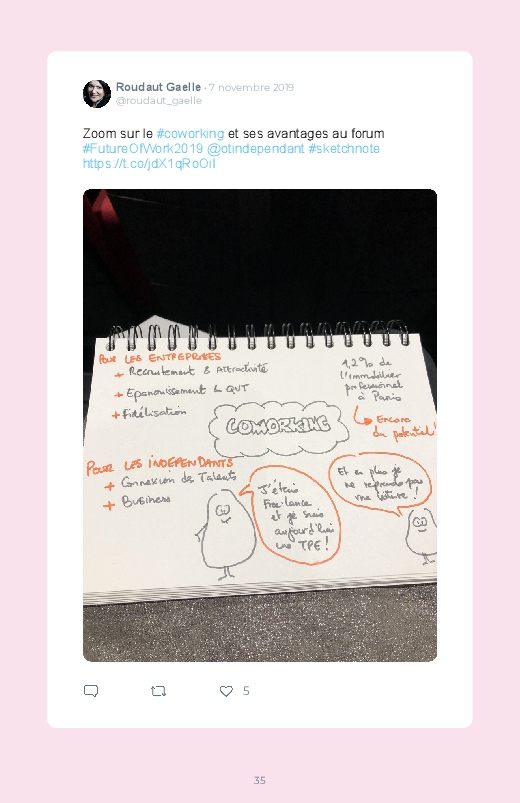 Roudaut Gaelle • 7 novembre 2019
@roudaut_gaelle
Zoom sur le #coworking et ses avantages au forum
#FutureOfWork2019 @otindependant #sketchnote
https://t.co/jdX1qRoOiI
POUR LES ENTREPRISES
+ Recrutement & Attractivité
+ Epanouissement & QVT
+ Fidélisation
COWORKING
1,2% de
l'immobilier
professionnel
à Paris
Encore
du potentiel!
POUR LES INDÉPENDANTS
+ Connexion de Talents
+ Business
J'étais
Freelance
et je suis
aujourd'hui
une TPE !
Et en plus je
ne reprends pas
ma voiture !
5
35